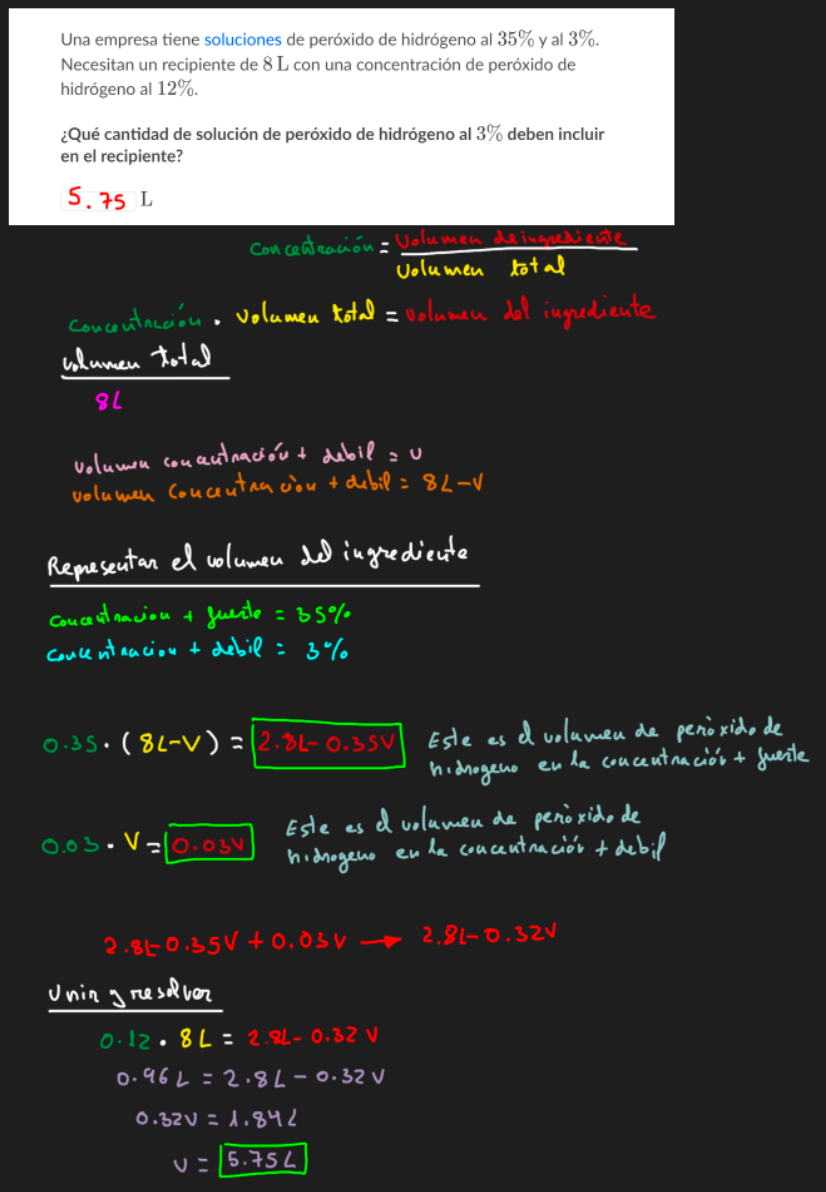 Una empresa tiene soluciones de peróxido de hidrógeno al 35% y al 3%.
Necesitan un recipiente de 8 L con una concentración de peróxido de
hidrógeno al 12%.
¿Qué cantidad de solución de peróxido de hidrógeno al 3% deben incluir
en el recipiente?
5.75 L
Concentración = Volumen de ingrediente
Volumen total
Concentración . Volumen total = volumen del ingrediente
Volumen total
8L
Volumen concentración + debil = V
Volumen Concentración + debil = 8L-V
Representar el volumen del ingrediente
Concentracion + fuerte = 35%
Concentracion + debil = 3%
0.35 . (8L-V) = 2.8L-0.35V Este es el volumen de peróxido de
hidrogeno en la concentración + fuerte
0.03 . V = 0.03V Este es el volumen de peróxido de
hidrogeno en la concentración + debil
2.8L-0.35V + 0.03V → 2.8L-0.32V
Unir y resolver
0.12 . 8L = 2.8L-0.32V
0.96L = 2.8L-0.32V
0.32V = 1.84L
V = 5.75L